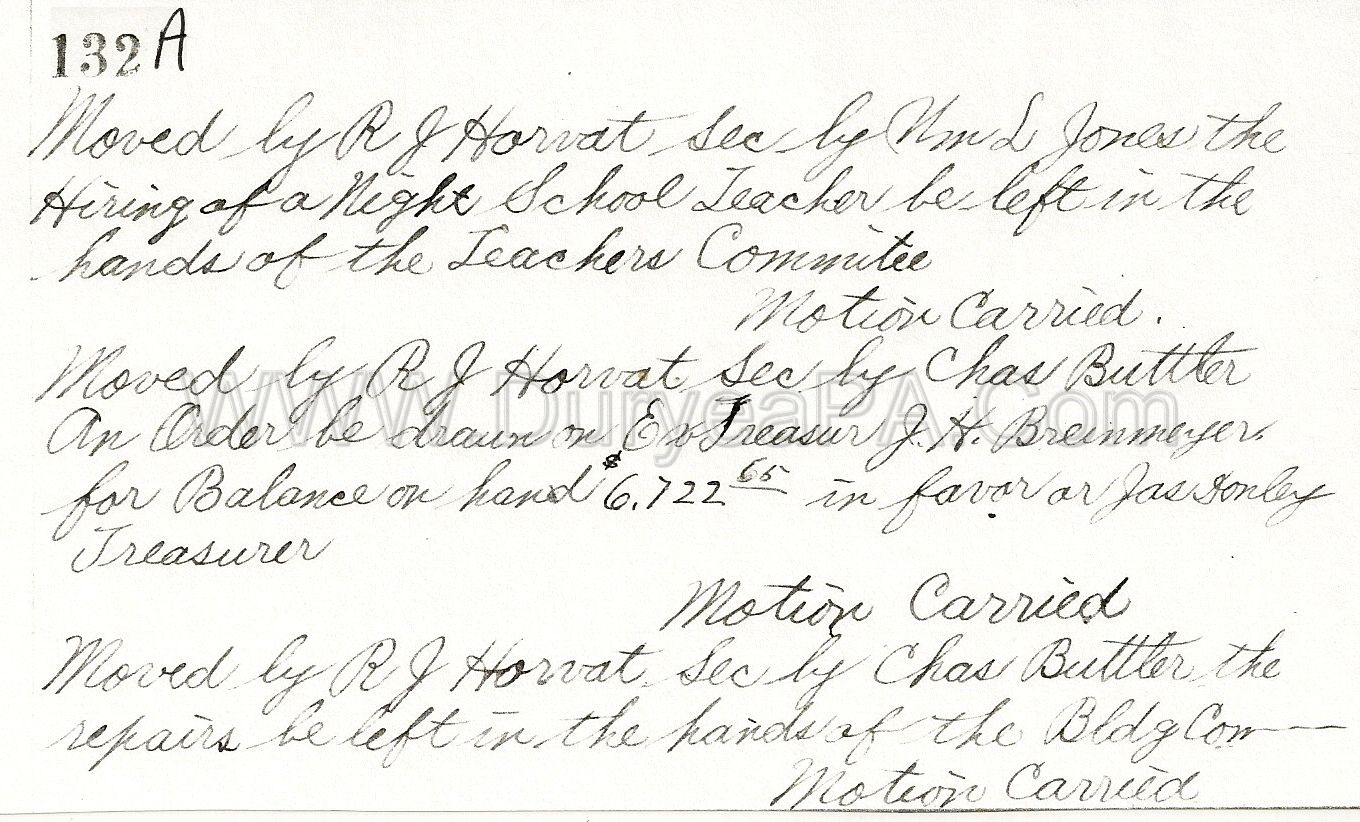 132 A
Moved by R J Horvat sec by Wm L Jones the
Hiring of a Night School Teacher be left in the
hands of the Teachers Commitee
Motion Carried.
Moved by R J Horvat Sec by Chas Buttler
WWW.DuryeaPA.Com
An Order be drawn on Ex Treasur J. H. Breenmeyer
for Balance on hand $6.722 65 in favor or Jas
Treasurer
Motion Carried
Moved by R J Horvat Sec by Chas Buttler the
repairs be left in the hands of the Bldg Com
Motion Carried